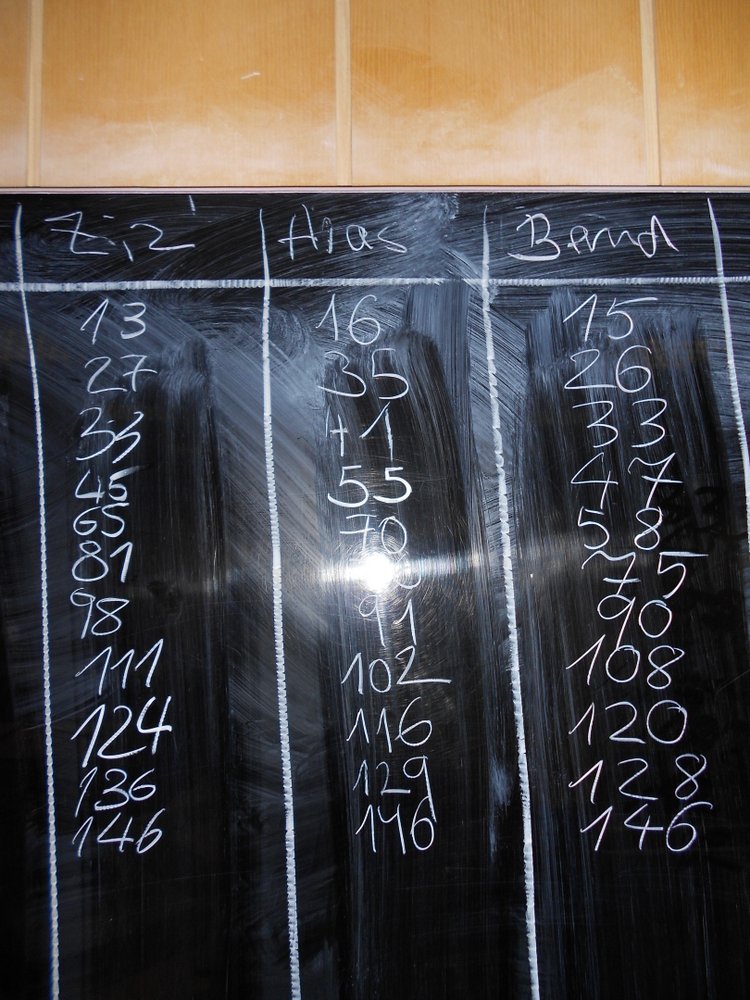 Bernd
13 16 15
27 35 26
41 33
45 55 47
65 70 58
81 75
98 91 90
111 102 108
124 116 120
136 129 128
146 146 146